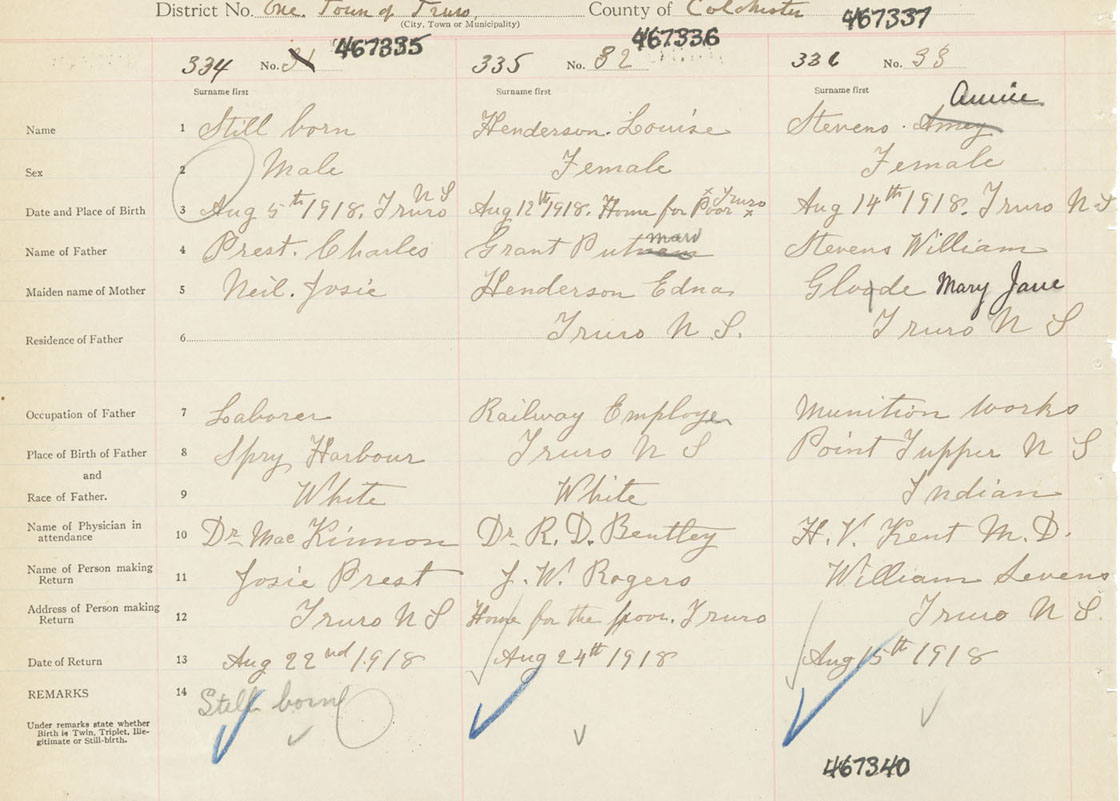 District No. One. Town of Truro, County of Colchester
(City, Town or Municipality)
467335 467336 467337
334 No. 31 335 No. 32 336 No. 33
Surname first Surname first Surname first
Annie
Name 1 Still born Henderson. Louise Stevens. Amey
Sex 2 Male Female Female
Date and Place of Birth 3 Aug 5th 1918. Truro N S Aug 12th 1918. Home for Poor Truro Aug 14th 1918. Truro N S
Name of Father 4 Prest. Charles Grant Putnam Stevens William
Maiden name of Mother 5 Neil. Josie Henderson Edna Gloade Mary Jane
Residence of Father 6 Truro N. S. Truro N S
Occupation of Father 7 Laborer Railway Employee Munition Works
Place of Birth of Father 8 Spry Harbour Truro N S Point Tupper N S
and
Race of Father. 9 White White Indian
Name of Physician in attendance 10 Dr Mac Kinnon Dr R. D. Bentley H. V. Kent M. D.
Name of Person making Return 11 Josie Prest J. W. Rogers William Sevens
Address of Person making Return 12 Truro N S Home for the poor. Truro Truro N S.
Date of Return 13 Aug 22nd 1918 Aug 24th 1918 Aug 15th 1918
REMARKS 14 Still born
Under remarks state whether
Birth is Twin, Triplet, Ille-
gitimate or Still-birth.
467340